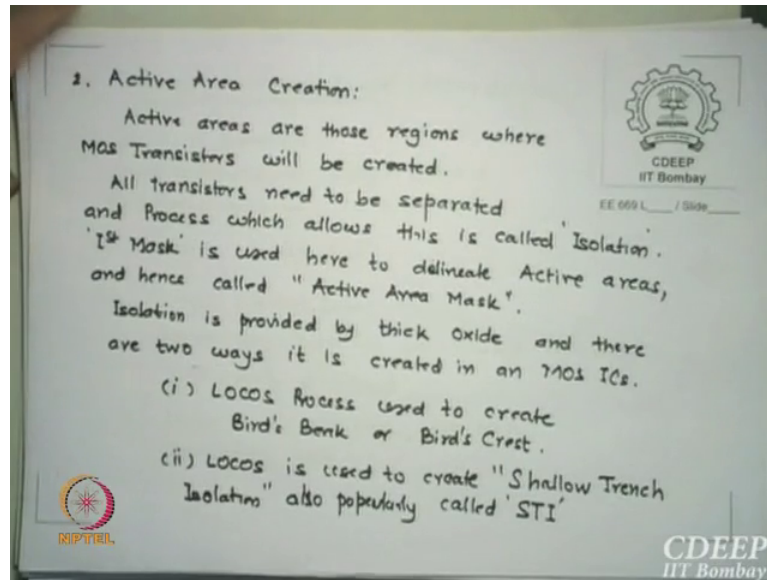 2. Active Area Creation:
Active areas are those regions where
MOS Transistors will be created.
All transistors need to be separated
and Process which allows this is called 'Isolation'.
'Ist Mask' is used here to delineate Active areas,
and hence called "Active Area Mask".
Isolation is provided by thick oxide and there
are two ways it is created in an MOS ICs.
(i) LOCOS Process used to create
Bird's Beak or Bird's Crest.
(ii) LOCOS is used to create "Shallow Trench
Isolation" also popularly called 'STI'
CDEEP
IIT Bombay
EE 669 L____ / Slide____
NPTEL
CDEEP
IIT Bombay